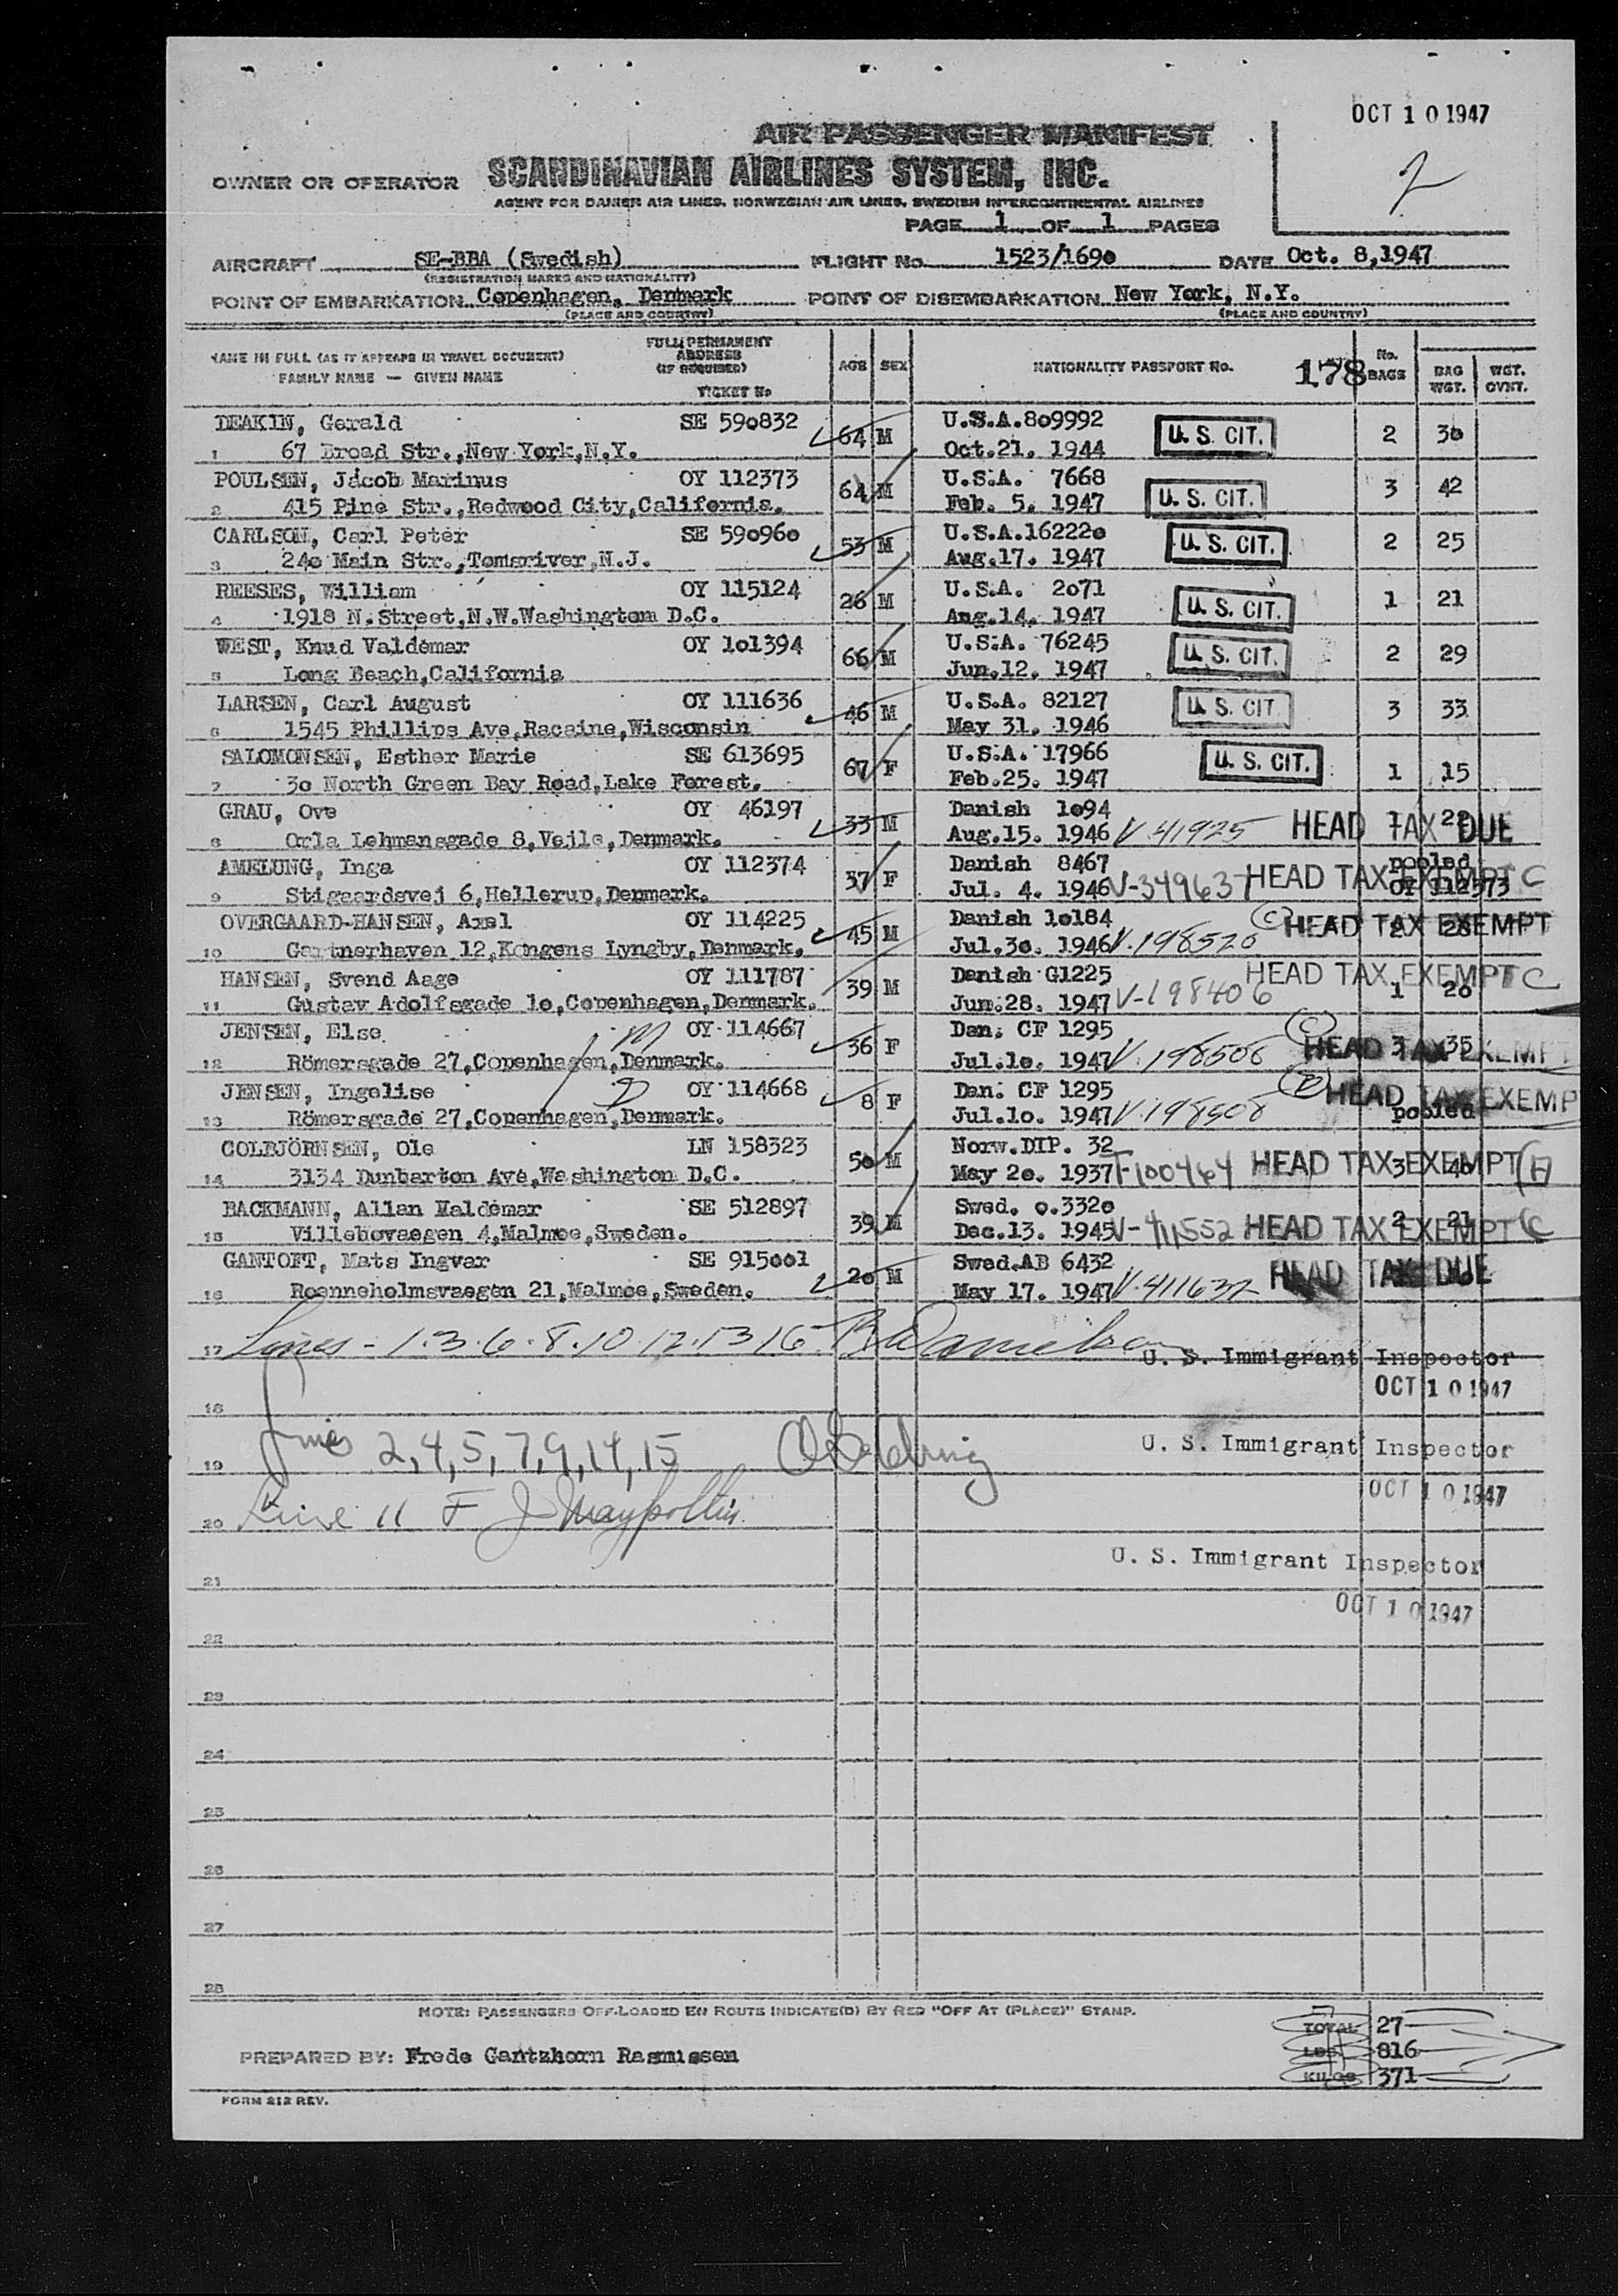 OCT 10 1947
AIR PASSENGER MANIFEST
2
OWNER OR OPERATOR SCANDINAVIAN AIRLINES SYSTEM, INC.
AGENT FOR DANISH AIR LINES, NORWEGIAN AIR LINES, SWEDISH INTERCONTINENTAL AIRLINES
PAGE 1 OF 1 PAGES
AIRCRAFT SE-BBA (Swedish) FLIGHT No. 1523/169o DATE Oct. 8,1947
(REGISTRATION MARKS AND NATIONALITY)
POINT OF EMBARKATION Copenhagen, Denmark POINT OF DISEMBARKATION New York, N.Y.
(PLACE AND COUNTRY) (PLACE AND COUNTRY)
NAME IN FULL (AS IT APPEARS IN TRAVEL DOCUMENT) FULL PERMANENT ADDRESS (IF REQUIRED) AGE SEX NATIONALITY PASSPORT No. 178 No. BAGS BAG WGT. WGT. OVNT.
FAMILY NAME — GIVEN NAME TICKET No
DEAKIN, Gerald SE 59o832 64 M U.S.A.8o9992 U. S. CIT. 2 3o
1 67 Broad Str.,New York,N.Y. Oct.21. 1944
POULSEN, Jacob Marinus OY 112373 64 M U.S.A. 7668 U. S. CIT. 3 42
2 415 Pine Str.,Redwood City,California. Feb. 5. 1947
CARLSON, Carl Peter SE 59o96o 53 M U.S.A.16222o U. S. CIT. 2 25
3 24o Main Str.,Tomsriver,N.J. Aug.17. 1947
REESES, William OY 115124 26 M U.S.A. 2o71 U. S. CIT. 1 21
4 1918 N.Street,N.W.Washington D.C. Aug.14. 1947
WEST, Knud Valdemar OY 1o1394 66 M U.S.A. 76245 U. S. CIT. 2 29
5 Long Beach,California Jun.12. 1947
LARSEN, Carl August OY 111636 46 M U.S.A. 82127 U. S. CIT. 3 33
6 1545 Phillips Ave,Racaine,Wisconsin May 31. 1946
SALOMONSEN, Esther Marie SE 613695 67 F U.S.A. 17966 U. S. CIT. 1 15
7 3o North Green Bay Road,Lake Forest. Feb.25. 1947
GRAU, Ove OY 46197 33 M Danish 1o94 HEAD TAX DUE 1 22
8 Orla Lehmansgade 8,Vejle,Denmark. Aug.15. 1946 V.41925
AMELUNG, Inga OY 112374 37 F Danish 8467 HEAD TAX EXEMPT C pooled
9 Stigaardsvej 6,Hellerup,Denmark. Jul. 4. 1946 V-349637 OY 112373
OVERGAARD-HANSEN, Axel OY 114225 45 M Danish 1o184 (C) HEAD TAX EXEMPT 2 28
10 Gartnerhaven 12,Kongens Lyngby,Denmark. Jul.3o. 1946 V.198520
HANSEN, Svend Aage OY 111787 39 M Danish G1225 HEAD TAX EXEMPT C 1 2o
11 Gustav Adolfsgade 1o,Copenhagen,Denmark. Jun.28. 1947 V-198406
JENSEN, Else OY 114667 36 F Dan. CF 1295 (C) HEAD TAX EXEMPT 3 35
12 Römersgade 27,Copenhagen,Denmark. Jul.1o. 1947 V.198506
JENSEN, Ingelise OY 114668 8 F Dan. CF 1295 HEAD TAX EXEMP
13 Römersgade 27,Copenhagen,Denmark. Jul.1o. 1947 V.198508 pooled
COLBJÖRNSEN, Ole LN 158323 5o M Norw.DIP. 32 HEAD TAX EXEMPT 3 4o
14 3134 Dunbarton Ave,Washington D.C. May 2o. 1937 F-100464
BACKMANN, Allan Valdemar SE 512897 39 M Swed. o.332o HEAD TAX EXEMPT C 2 21
15 Villebovaegen 4,Malmoe,Sweden. Dec.13. 1945 V-411552
GANTOFT, Mats Ingvar SE 915oo1 2o M Swed.AB 6432 HEAD TAX DUE
16 Roenneholmsvaegen 21,Malmoe,Sweden. May 17. 1947 V.411632
17 Lines - 1.3.6.8.10.12.13 16 U. S. Immigrant Inspector
OCT 10 1947
18
19 Lines 2,4,5,7,9,14,15 U. S. Immigrant Inspector
OCT 10 1947
20 Line 11 F J
U. S. Immigrant Inspector
21
OCT 10 1947
22
23
24
25
26
27
28
NOTE: PASSENGERS OFF-LOADED EN ROUTE INDICATE(D) BY RED "OFF AT (PLACE)" STAMP.
TOTAL 27
PREPARED BY: Frede Gantzhorn Rasmussen LBS. 816
KILOS 371
FORM 212 REV.